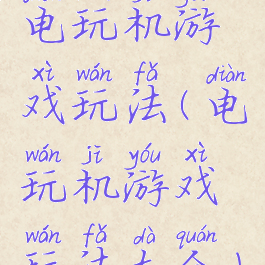 电玩机游
xì wán fǎ diàn
戏玩法(电
wán jī yóu xì
玩机游戏
wán fǎ dà quán
玩法大全)